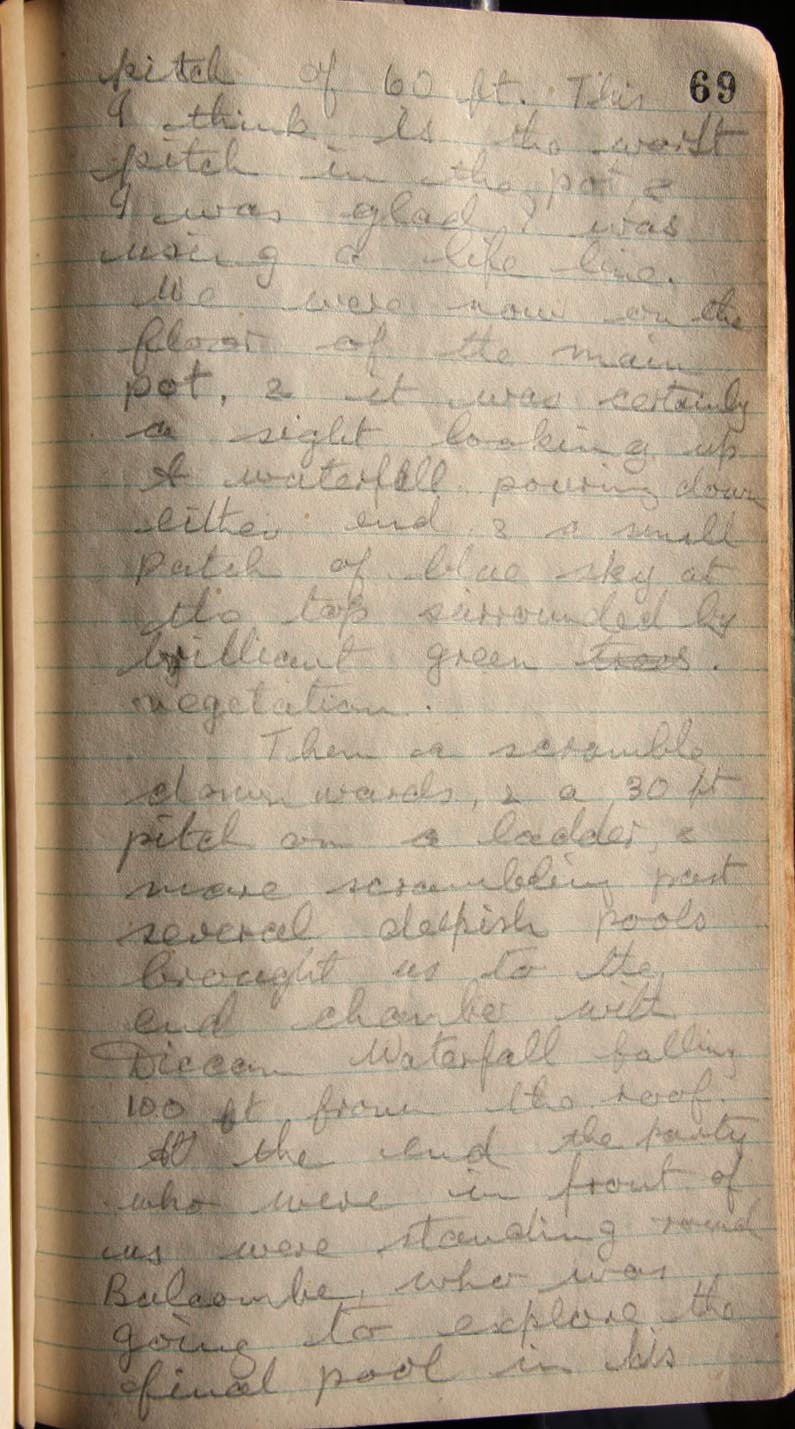 69
pitch of 60 ft. This
I think is the worst
pitch in the pot, &
I was glad I was
using a life line.
We were now on the
floor of the main
pot, & it was certainly
a sight looking up
A waterfall pouring down
either end & a small
patch of blue sky at
the top surrounded by
brilliant green trees.
vegetation.
Then a scramble
downwards, & a 30 ft
pitch on a ladder, &
more scrambling past
several deepish pools
brought us to the
end chamber with
Diccan Waterfall falling
100 ft from the roof.
At the end the party
who were in front of
us were standing round
Balcombe, who was
going to explore the
final pool in his